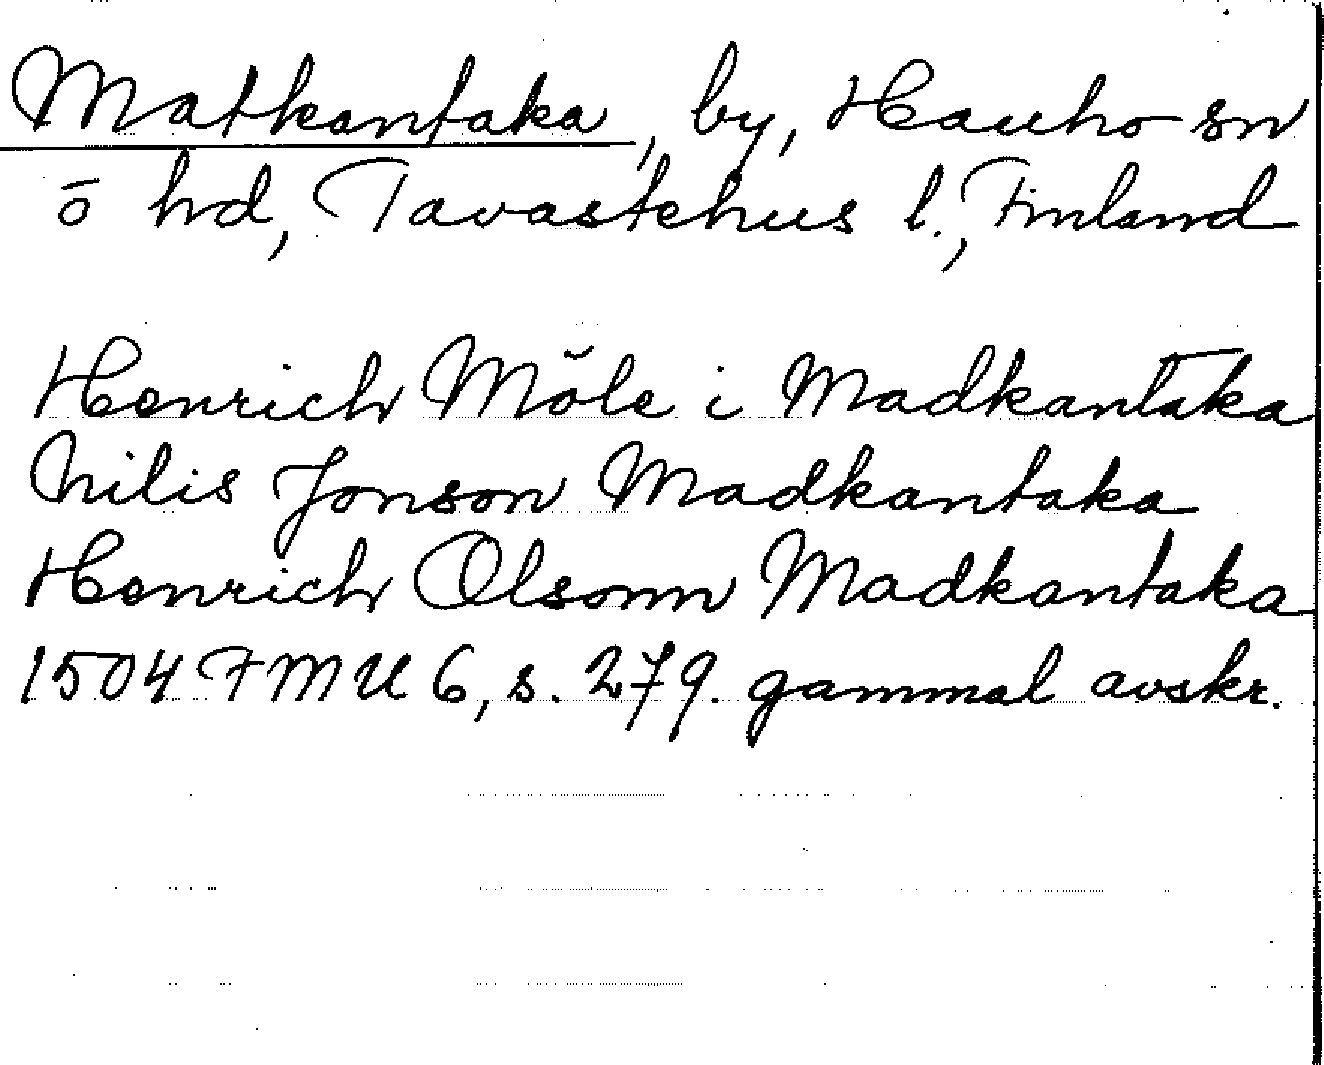 Matkantaka, by, Hauho sn
ö hd, Tavastehus l., Finland
Henrich Möle i Madkantaka
Nilis Jonson Madkantaka
Henrich Olsonn Madkantaka
1504 FMU 6, s. 279. gammal avskr.